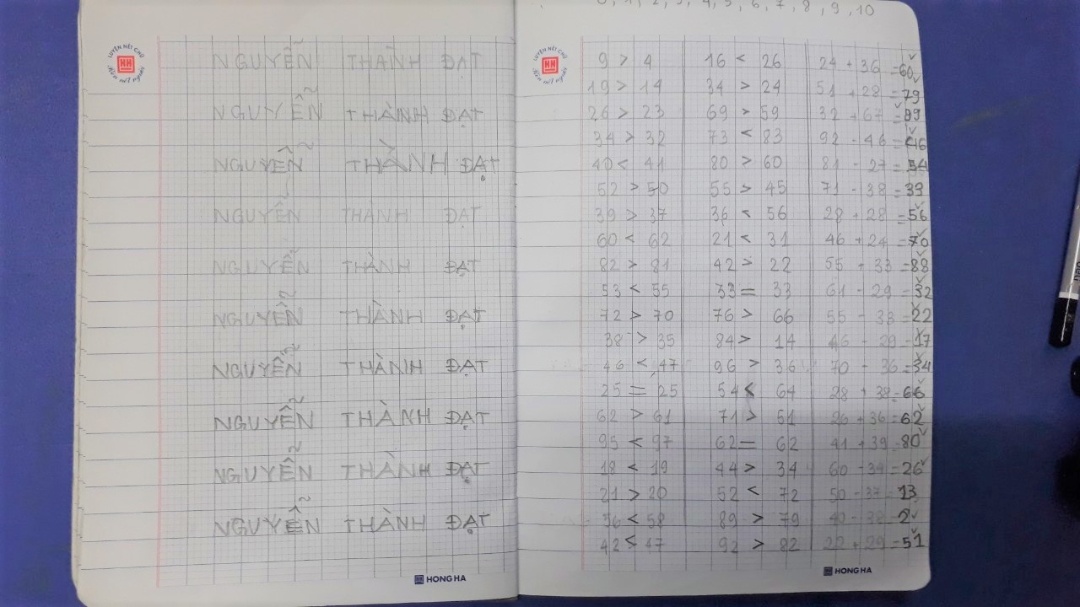 LUYỆN NÉT CHỮ
Rèn nết người
HH
NGUYỄN THÀNH ĐẠT
NGUYỄN THÀNH ĐẠT
NGUYỄN THÀNH ĐẠT
NGUYỄN THÀNH ĐẠT
NGUYỄN THÀNH ĐẠT
NGUYỄN THÀNH ĐẠT
NGUYỄN THÀNH ĐẠT
NGUYỄN THÀNH ĐẠT
NGUYỄN THÀNH ĐẠT
NGUYỄN THÀNH ĐẠT
HONG HA
0, 1, 2, 3, 4, 5, 6, 7, 8, 9, 10
LUYỆN NÉT CHỮ
Rèn nết người
HH
9 > 4 16 < 26 24 + 36 = 60
19 > 14 34 > 24 51 + 28 = 79
26 > 23 69 > 59 32 + 67 = 99
34 > 32 73 < 83 92 - 46 = 46
40 < 41 80 > 60 81 - 27 = 54
52 > 50 55 > 45 71 - 38 = 39
39 > 37 36 < 56 28 + 28 = 56
60 < 62 21 < 31 46 + 24 = 70
82 > 81 42 > 22 55 + 33 = 88
53 < 55 33 = 33 61 - 29 = 32
72 > 70 76 > 66 55 - 33 = 22
38 > 35 84 > 14 46 - 29 = 17
46 < 47 96 > 36 70 - 36 = 34
25 = 25 54 < 64 28 + 38 = 66
62 > 61 71 > 51 26 + 36 = 62
95 < 97 62 = 62 41 + 39 = 80
18 < 19 44 > 34 60 - 34 = 26
21 > 20 52 < 72 50 - 37 = 13
56 < 58 89 > 79 40 - 38 = 2
42 < 47 92 > 82 22 + 29 = 51
HONG HA